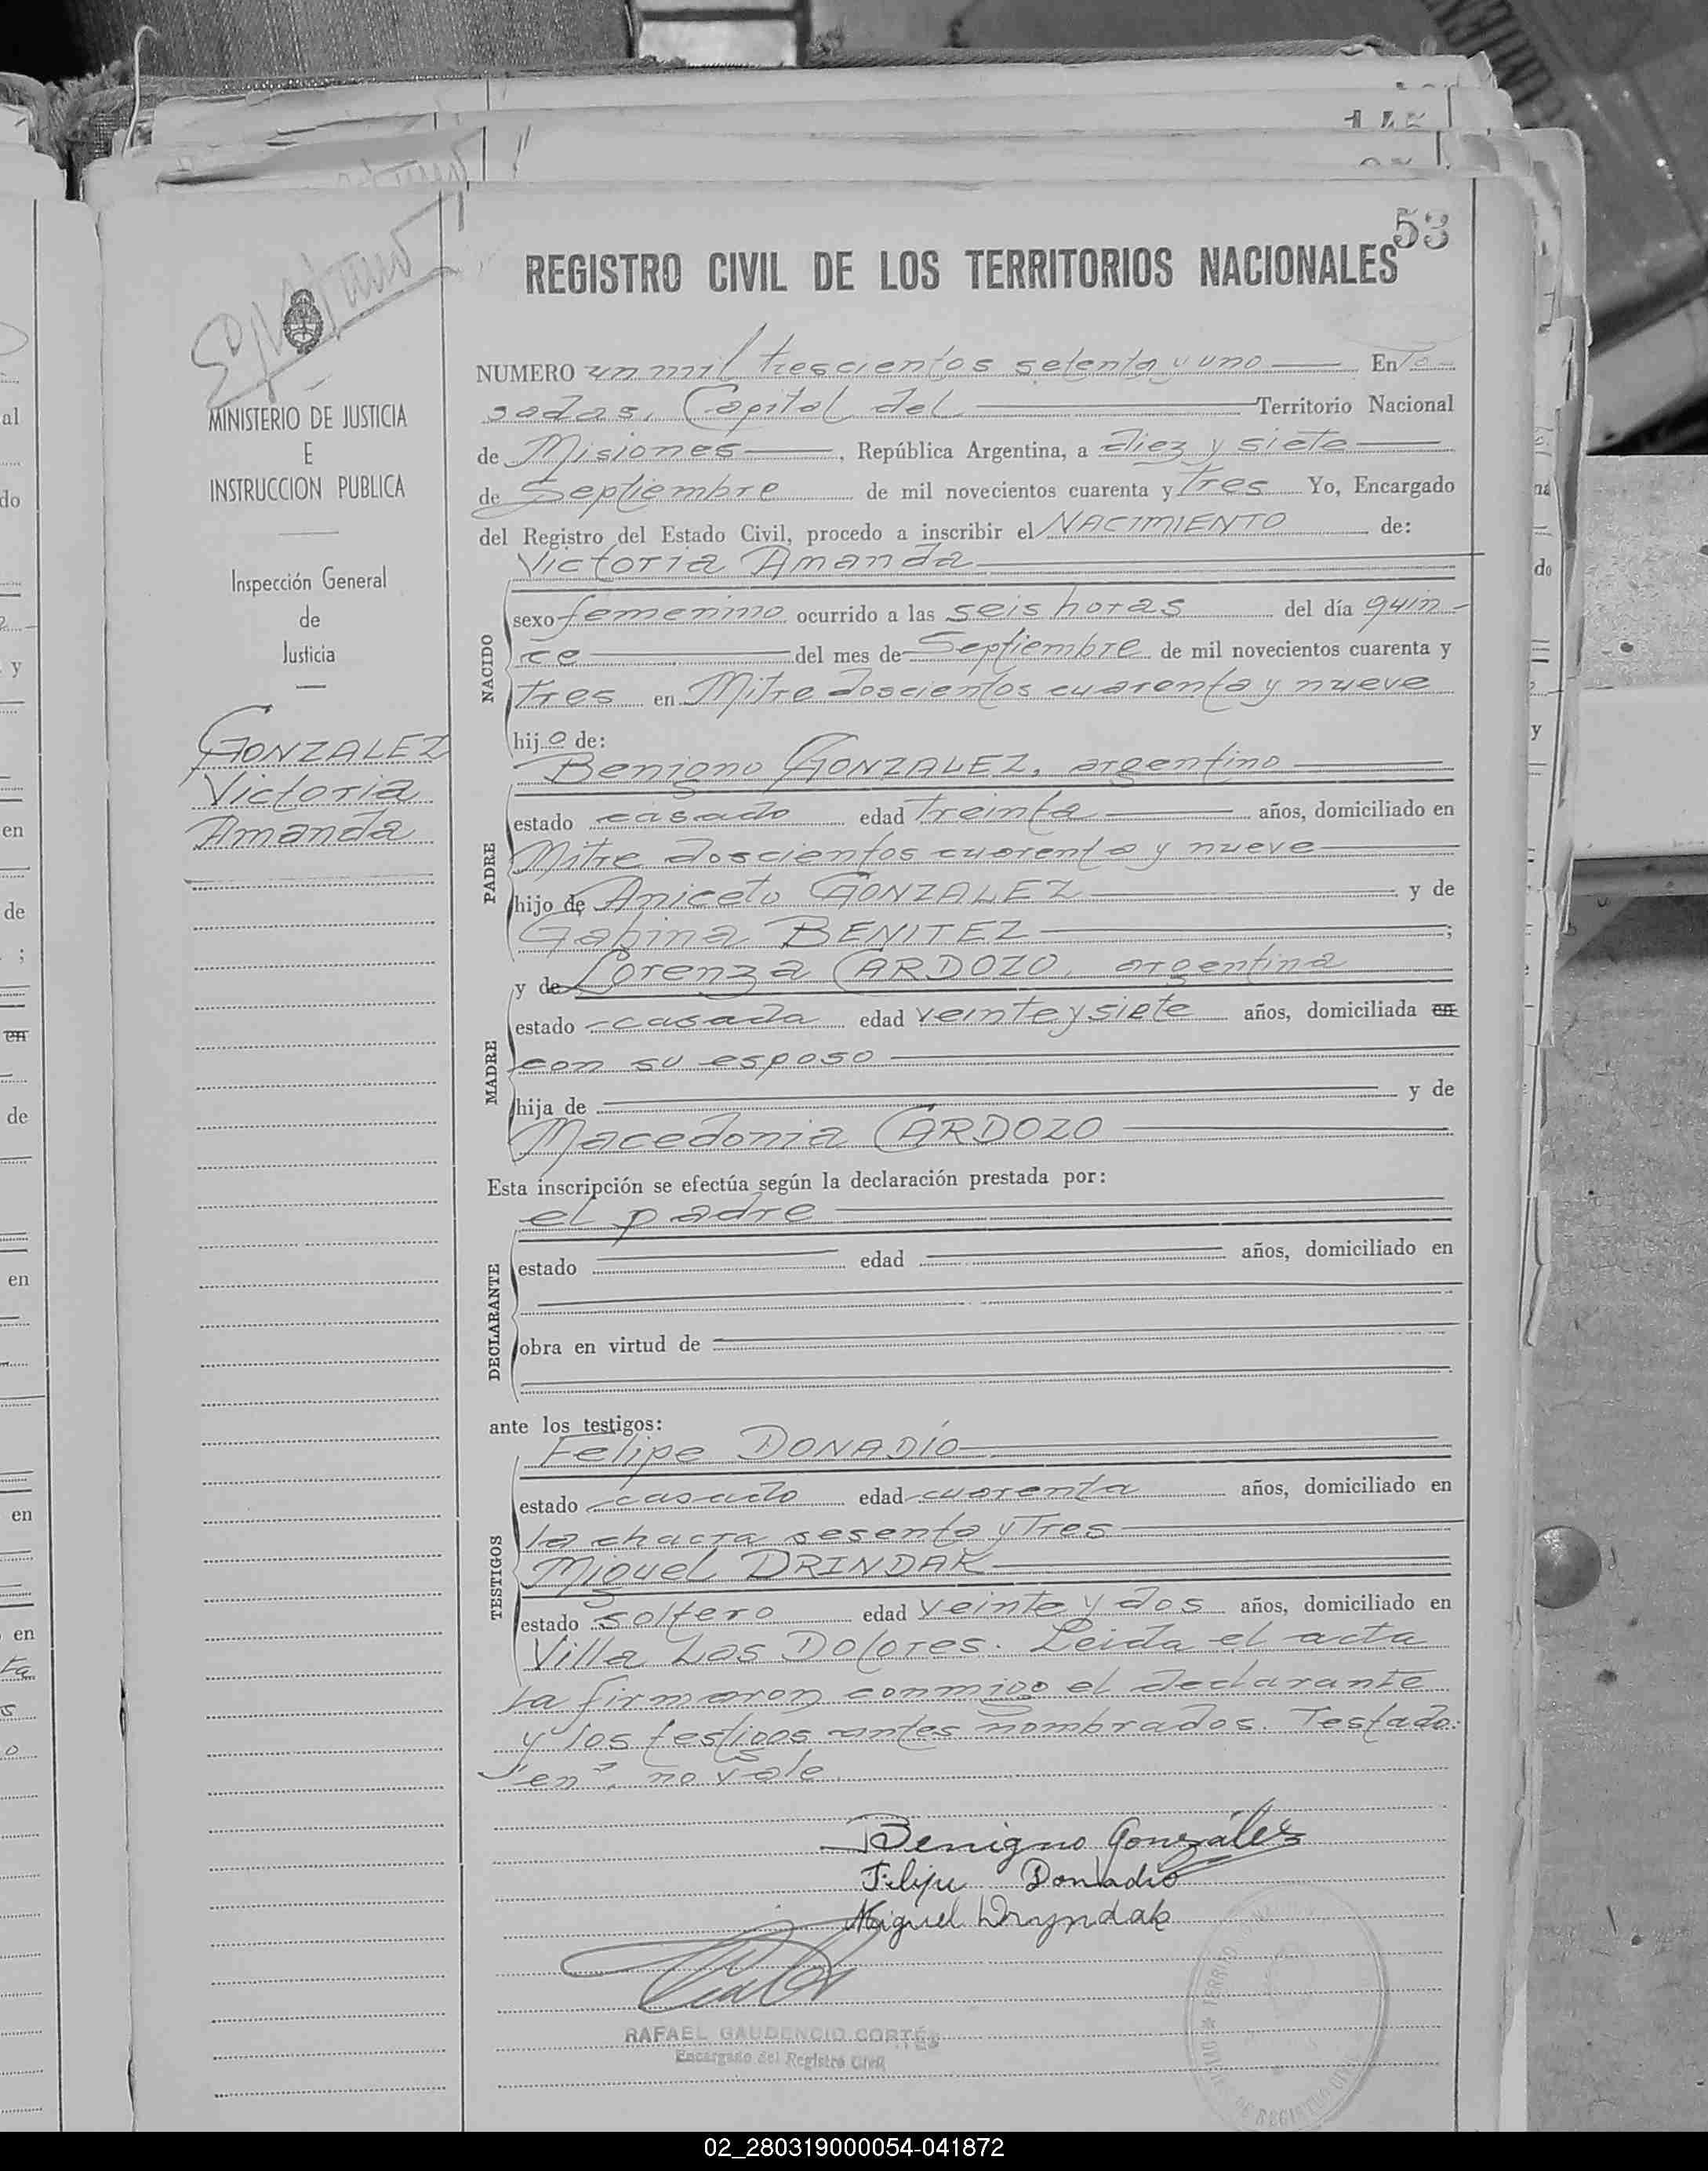 53
REGISTRO CIVIL DE LOS TERRITORIOS NACIONALES
MINISTERIO DE JUSTICIA
E
INSTRUCCION PUBLICA
Inspección General
de
Justicia
GONZALEZ
Victoria
Amanda
NUMERO un mil trescientos setenta y uno En Po-
sadas, Capital del Territorio Nacional
de Misiones, República Argentina, a diez y siete
de Septiembre de mil novecientos cuarenta y Tres Yo, Encargado
del Registro del Estado Civil, procedo a inscribir el NACIMIENTO de:
Victoria Amanda
NACIDO
sexo femenino ocurrido a las seis horas del día quin-
ce del mes de Septiembre de mil novecientos cuarenta y
Tres en Mitre doscientos cuarenta y nueve
hijo de:
Benigno GONZALEZ, argentino
PADRE
estado casado edad Treinta años, domiciliado en
Mitre doscientos cuarenta y nueve
hijo de Aniceto GONZALEZ y de
Gabina BENITEZ;
y de Lorenza CARDOZO, argentina
MADRE
estado casada edad veinte y siete años, domiciliada en
con su esposo
hija de y de
Macedonia CARDOZO
Esta inscripción se efectúa según la declaración prestada por:
el padre
DECLARANTE
estado edad años, domiciliado en
obra en virtud de
ante los testigos:
Felipe DONADÍO
TESTIGOS
estado casado edad cuarenta años, domiciliado en
la chacra sesenta y Tres
Miguel DRINDAK
estado soltero edad veinte y dos años, domiciliado en
Villa Las Dolores. Leida el acta
la firmaron conmigo el declarante
y los testigos antes nombrados. Testado:
"en", no vale
Benigno González
Felipe Donadío
Miguel Dryndak
RAFAEL GAUDENCIO CORTÉS
Encargado del Registro Civil
02_280319000054-041872